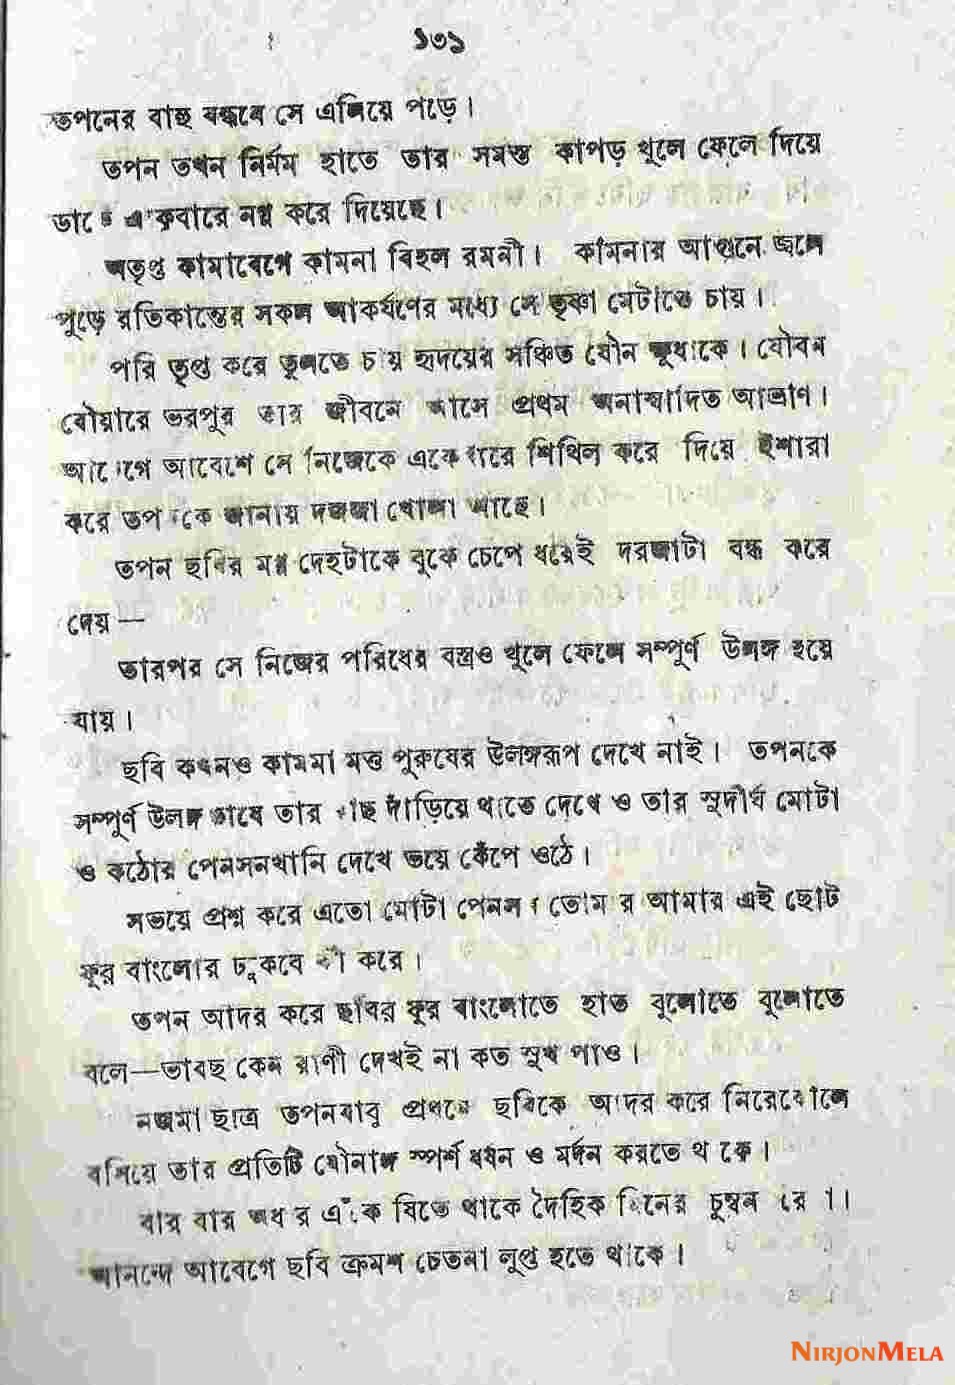 ১৩১
তপনের বাহু বন্ধনে সে এলিয়ে পড়ে।
তপন তখন নির্মম হাতে তার সমস্ত কাপড় খুলে ফেলে দিয়ে
একবারে নগ্ন করে দিয়েছে।
অতৃপ্ত কামাবেগে কামনা বিহল রমনী। কামনার আগুনে জ্বলে
পুড়ে রতিকান্তের সকল আকর্ষণের মধ্যে সে তৃষ্ণা মেটাতে চায়।
পরি তৃপ্ত করে তুলতে চায় হৃদয়ের সঞ্চিত যৌন ক্ষুধাকে। যৌবন
ভরপুর তার জীবনে আসে প্রথম অনাস্বাদিত আঘ্রাণ।
আবেশে সে নিজেকে একেবারে শিথিল করে দিয়ে ইশারা
করে জানায় দরজা খোলা আছে।
তপন ছবির নগ্ন দেহটাকে বুকে চেপে ধরেই দরজাটা বন্ধ করে
দেয়—
তারপর সে নিজের পরিধের বস্ত্রও খুলে ফেলে সম্পূর্ণ উলঙ্গ হয়ে
যায়।
ছবি কখনও কামনা মত্ত পুরুষের উলঙ্গরূপ দেখে নাই। তপনকে
সম্পূর্ণ উলঙ্গ ভাবে তার দাঁড়িয়ে থাতে দেখে ও তার সুদীর্ঘ মোটা
ও কঠোর পেনসনখানি দেখে ভয়ে কেঁপে ওঠে।
সভয়ে প্রশ্ন করে এতো মোটা আমার এই ছোট
ফুর বাংলোর ঢুকবে করে।
তপন আদর করে ছবির ফুর বাংলোতে হাত বুলোতে বুলোতে
বলে—ভাবছ কেন রাণী দেখই না কত সুখ পাও।
ছাত্র তপনবাবু প্রথমে ছবিকে আদর করে
বসিয়ে তার প্রতিটি যৌনাঙ্গ স্পর্শ ও মর্দন করতে থাকে।
বার বার থাকে দৈহিক চুম্বন
আনন্দে আবেগে ছবি ক্রমশ চেতনা লুপ্ত হতে থাকে।
NIRJONMELA